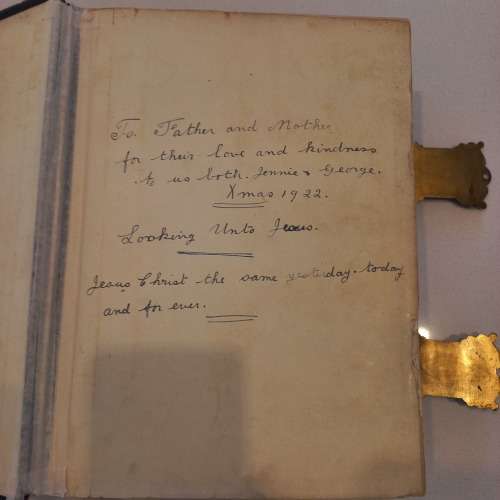 To. Father and Mother
for their love and kindness
to us both. Jennie & George.
Xmas 1922.
Looking Unto Jesus.
Jesus Christ the same yesterday. today
and for ever.